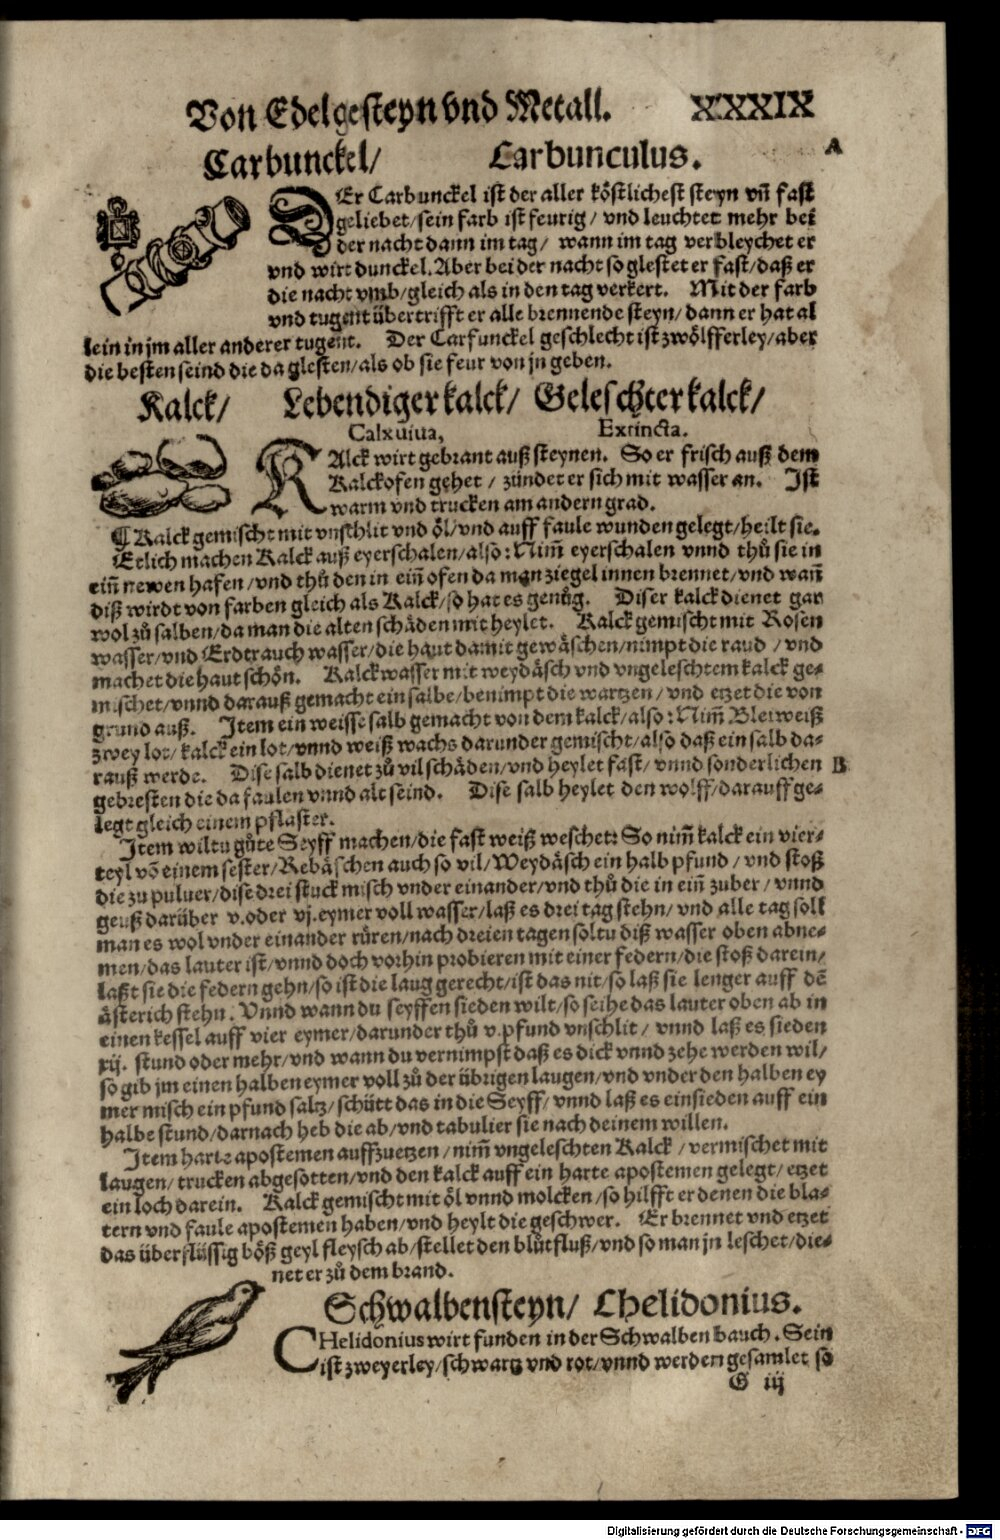 Von Edelgesteyn vnd Metall. XXXIX
A
Carbunckel/ Carbunculus.
DEr Carbunckel ist der aller köstlichest steyn vñ fast
geliebet/sein farb ist feurig/ vnd leuchtet mehr bei
der nacht dann im tag/ wann im tag verbleychet er
vnd wirt dunckel. Aber bei der nacht so glestet er fast/daß er
die nacht vmb/gleich als in den tag verkert. Mit der farb
vnd tugent übertrifft er alle brennende steyn/dann er hat al
lein in jm aller anderer tugent. Der Carfunckel geschlecht ist zwölfferley/aber
die besten seind die da glesten/als ob sie feur von jn geben.
Kalck/ Lebendiger kalck/ Geleschter kalck/
Calx viua, Extincta.
KAlck wirt gebrant auß steynen. So er frisch auß dem
Kalckofen gehet / zündet er sich mit wasser an. Ist
warm vnd trucken am andern grad.
¶ Kalck gemischt mit vnschlit vnd öl/vnd auff faule wunden gelegt/heilt sie.
Etlich machen Kalck auß eyerschalen/also: Nim̃ eyerschalen vnnd thů sie in
ein̄ newen hafen/vnd thů den in ein̄ ofen da man ziegel innen brennet/vnd wan̄
diß wirdt von farben gleich als Kalck/so hat es genůg. Diser kalck dienet gar
wol zů salben/da man die alten schäden mit heylet. Kalck gemischt mit Rosen
wasser/vnd Erdtrauch wasser/die haut damit gewäschen/nimpt die raud / vnd
machet die haut schön. Kalckwasser mit weydäsch vnd vngeleschtem kalck ge-
mischet/vnnd darauß gemacht ein salbe/benimpt die wartzen / vnd etzet die von
grund auß. Item ein weisse salb gemacht von dem kalck/also: Nim̃ Bleiweiß
zwey lot/ kalck ein lot/vnnd weiß wachs darunder gemischt/also daß ein salb da-
rauß werde. Dise salb dienet zů vil schäden/vnd heylet fast/ vnnd sonderlichen B
gebresten die da faulen vnnd alt seind. Dise salb heylet den wolff/darauff ge-
legt gleich einem pflaster.
Item wiltu gůte Seyff machen/die fast weiß weschet: So nim̃ kalck ein vier-
teyl võ einem sester/Rebäschen auch so vil/Weydäsch ein halb pfund / vnd stoß
die zu puluer/dise drei stuck misch vnder einander/vnd thů die in ein̄ zuber / vnnd
geuß darüber v. oder vj. eymer voll wasser/laß es drei tag stehn/ vnd alle tag soll
man es wol vnder einander rüren/nach dreien tagen soltu diß wasser oben abne-
men/das lauter ist/vnnd doch vorhin probieren mit einer federn/die stoß darein/
laßt sie die federn gehn/so ist die laug gerecht/ist das nit/so laß sie lenger auff dẽ
ästerich stehn. Vnnd wann du seyffen sieden wilt/so seihe das lauter oben ab in
einen kessel auff vier eymer/darunder thů v. pfund vnschlit / vnnd laß es sieden
xij. stund oder mehr/vnd wann du vernimpst daß es dick vnnd zehe werden wil/
so gib jm einen halben eymer voll zů der übrigen laugen/vnd vnder den halben ey
mer misch ein pfund saltz/schütt das in die Seyff/vnnd laß es einsieden auff ein
halbe stund/darnach heb die ab/vnd tabulier sie nach deinem willen.
Item harte apostemen auffzuetzen/nim̃ vngeleschten Kalck /vermischet mit
laugen/trucken abgesotten/vnd den kalck auff ein harte apostemen gelegt/etzet
ein loch darein. Kalck gemischt mit öl vnnd molcken/so hilfft er denen die bla-
tern vnd faule apostemen haben/vnd heylt die geschwer. Er brennet vnd etzet
das überflüssig böß geyl fleysch ab/stellet den blůtfluß/vnd so man jn leschet/die-
net er zů dem brand.
Schwalbensteyn/ Chelidonius.
CHelidonius wirt funden in der Schwalben bauch. Sein
ist zweyerley/schwartz vnd rot/vnnd werden gesamlet so
G iij
Digitalisierung gefördert durch die Deutsche Forschungsgemeinschaft - DFG